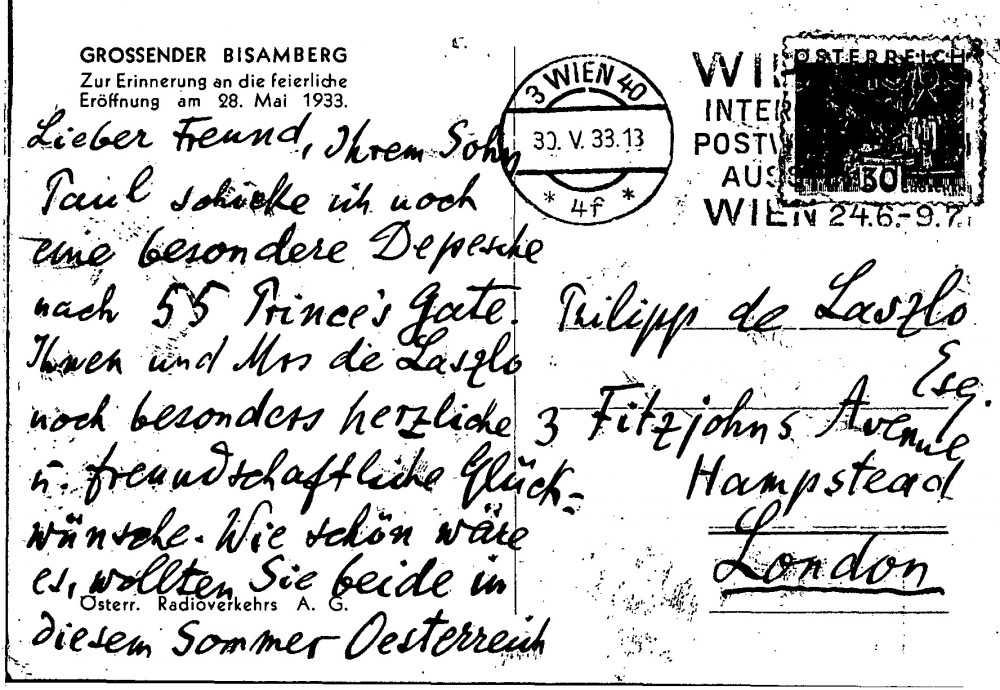 GROSSENDER BISAMBERG
Zur Erinnerung an die feierliche
Eröffnung am 28. Mai 1933.
Lieber Freund, Ihrem Sohn
Paul schicke ich noch
eine besondere Depesche
nach 55 Prince's Gate.
Ihnen und Mrs de Laszlo
noch besonders herzliche
u. freundschaftliche Glück-
wünsche. Wie schön wäre
es, wollten Sie beide in
Österr. Radioverkehrs A. G.
diesem Sommer Oesterreich
3 WIEN 40
30. V. 33.13
* 4f *
WI
INTER
POSTW
AUS
WIEN 24.6.-9.7.
ÖSTERREICH
30
Philipp de Laszlo
Esq.
3 Fitzjohns Avenue
Hampstead
London